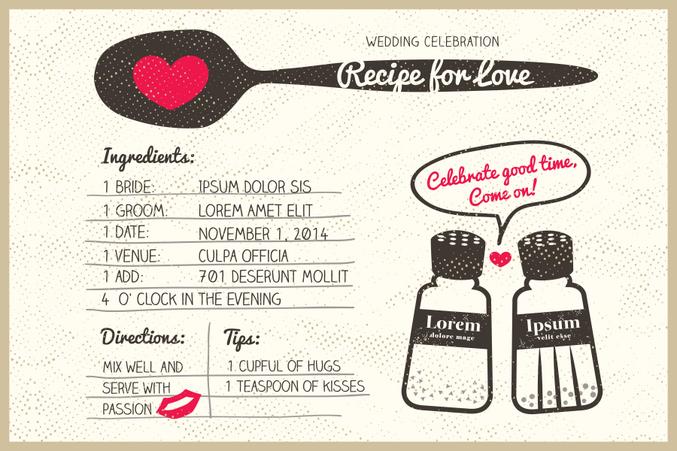 WEDDING CELEBRATION
Recipe for Love
Ingredients:
1 BRIDE: IPSUM DOLOR SIS
1 GROOM: LOREM AMET ELIT
1 DATE: NOVEMBER 1, 2014
1 VENUE: CULPA OFFICIA
1 ADD: 701 DESERUNT MOLLIT
4 O' CLOCK IN THE EVENING
Directions:
MIX WELL AND
SERVE WITH
PASSION
Tips:
1 CUPFUL OF HUGS
1 TEASPOON OF KISSES
Celebrate good time,
Come on!
Lorem
dolore mage
Ipsum
velit esse